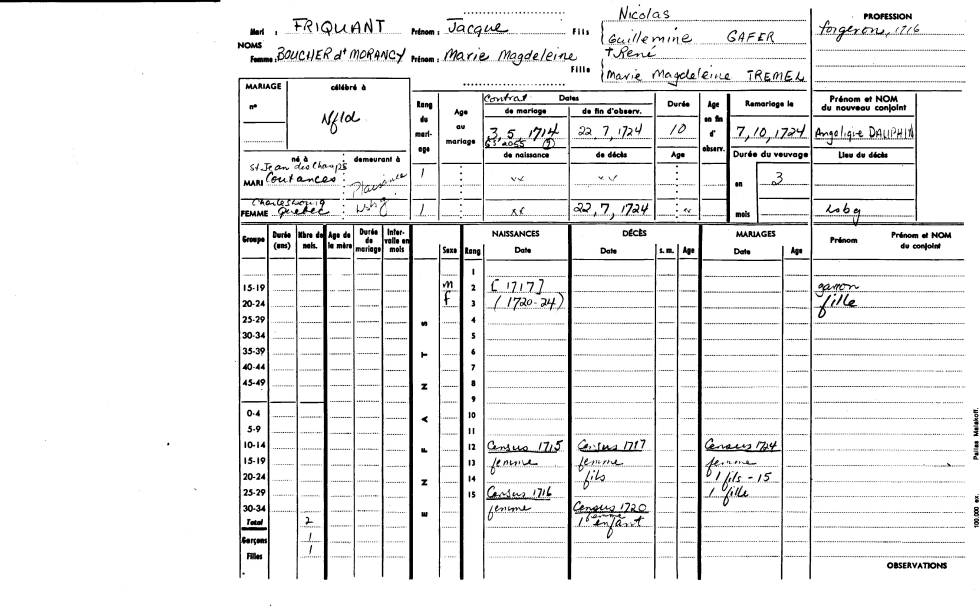 Mari : FRIQUANT Prénom : Jacque Fils { Nicolas
Guillemine GAFER
NOMS
Femme : BOUCHER dt MORANCY Prénom : Marie Magdeleine Fille { † René
Marie Magdeleine TREMEL
PROFESSION
forgeron, 1716
MARIAGE célébré à
n° Nfld
Rang du mariage
Age au mariage
Contrat Dates
de mariage de fin d'observ.
3, 5, 1714 22 7, 1724
G3 2055
de naissance de décès
Durée
10
Age
Age en fin d' observ.
Remariage le
7, 10, 1724
Durée du veuvage
en 3
mois
Prénom et NOM du nouveau conjoint
Angelique DAUPHIN
Lieu du décès
Lsbg
né à demeurant à
St Jean des Champs
MARI Coutances Plaisance 1 xx xx
Charlesbourg
FEMME Quebec Lsbg 1 xx 22, 7, 1724 "
Groupe Durée (ans) Nbre de nais. Age de la mère Durée de mariage Intervalle en mois
ENFANTS
Sexe Rang NAISSANCES Date DÉCÈS Date s. m. Age MARIAGES Date Age Prénom Prénom et NOM du conjoint
1
15-19 m 2 [1717] garron
20-24 f 3 (1720-24) fille
25-29 4
30-34 5
35-39 6
40-44 7
45-49 8
9
0-4 10
5-9 11
10-14 12 Census 1715 Census 1717 Census 1724
15-19 13 femme femme femme
20-24 14 fils 1 fils - 15
25-29 15 Census 1716 1 fille
30-34 femme Census 1720
Total 2 1 femme
1 enfant
Garçons 1
Filles 1
OBSERVATIONS
100.000 ex. Malakoff.